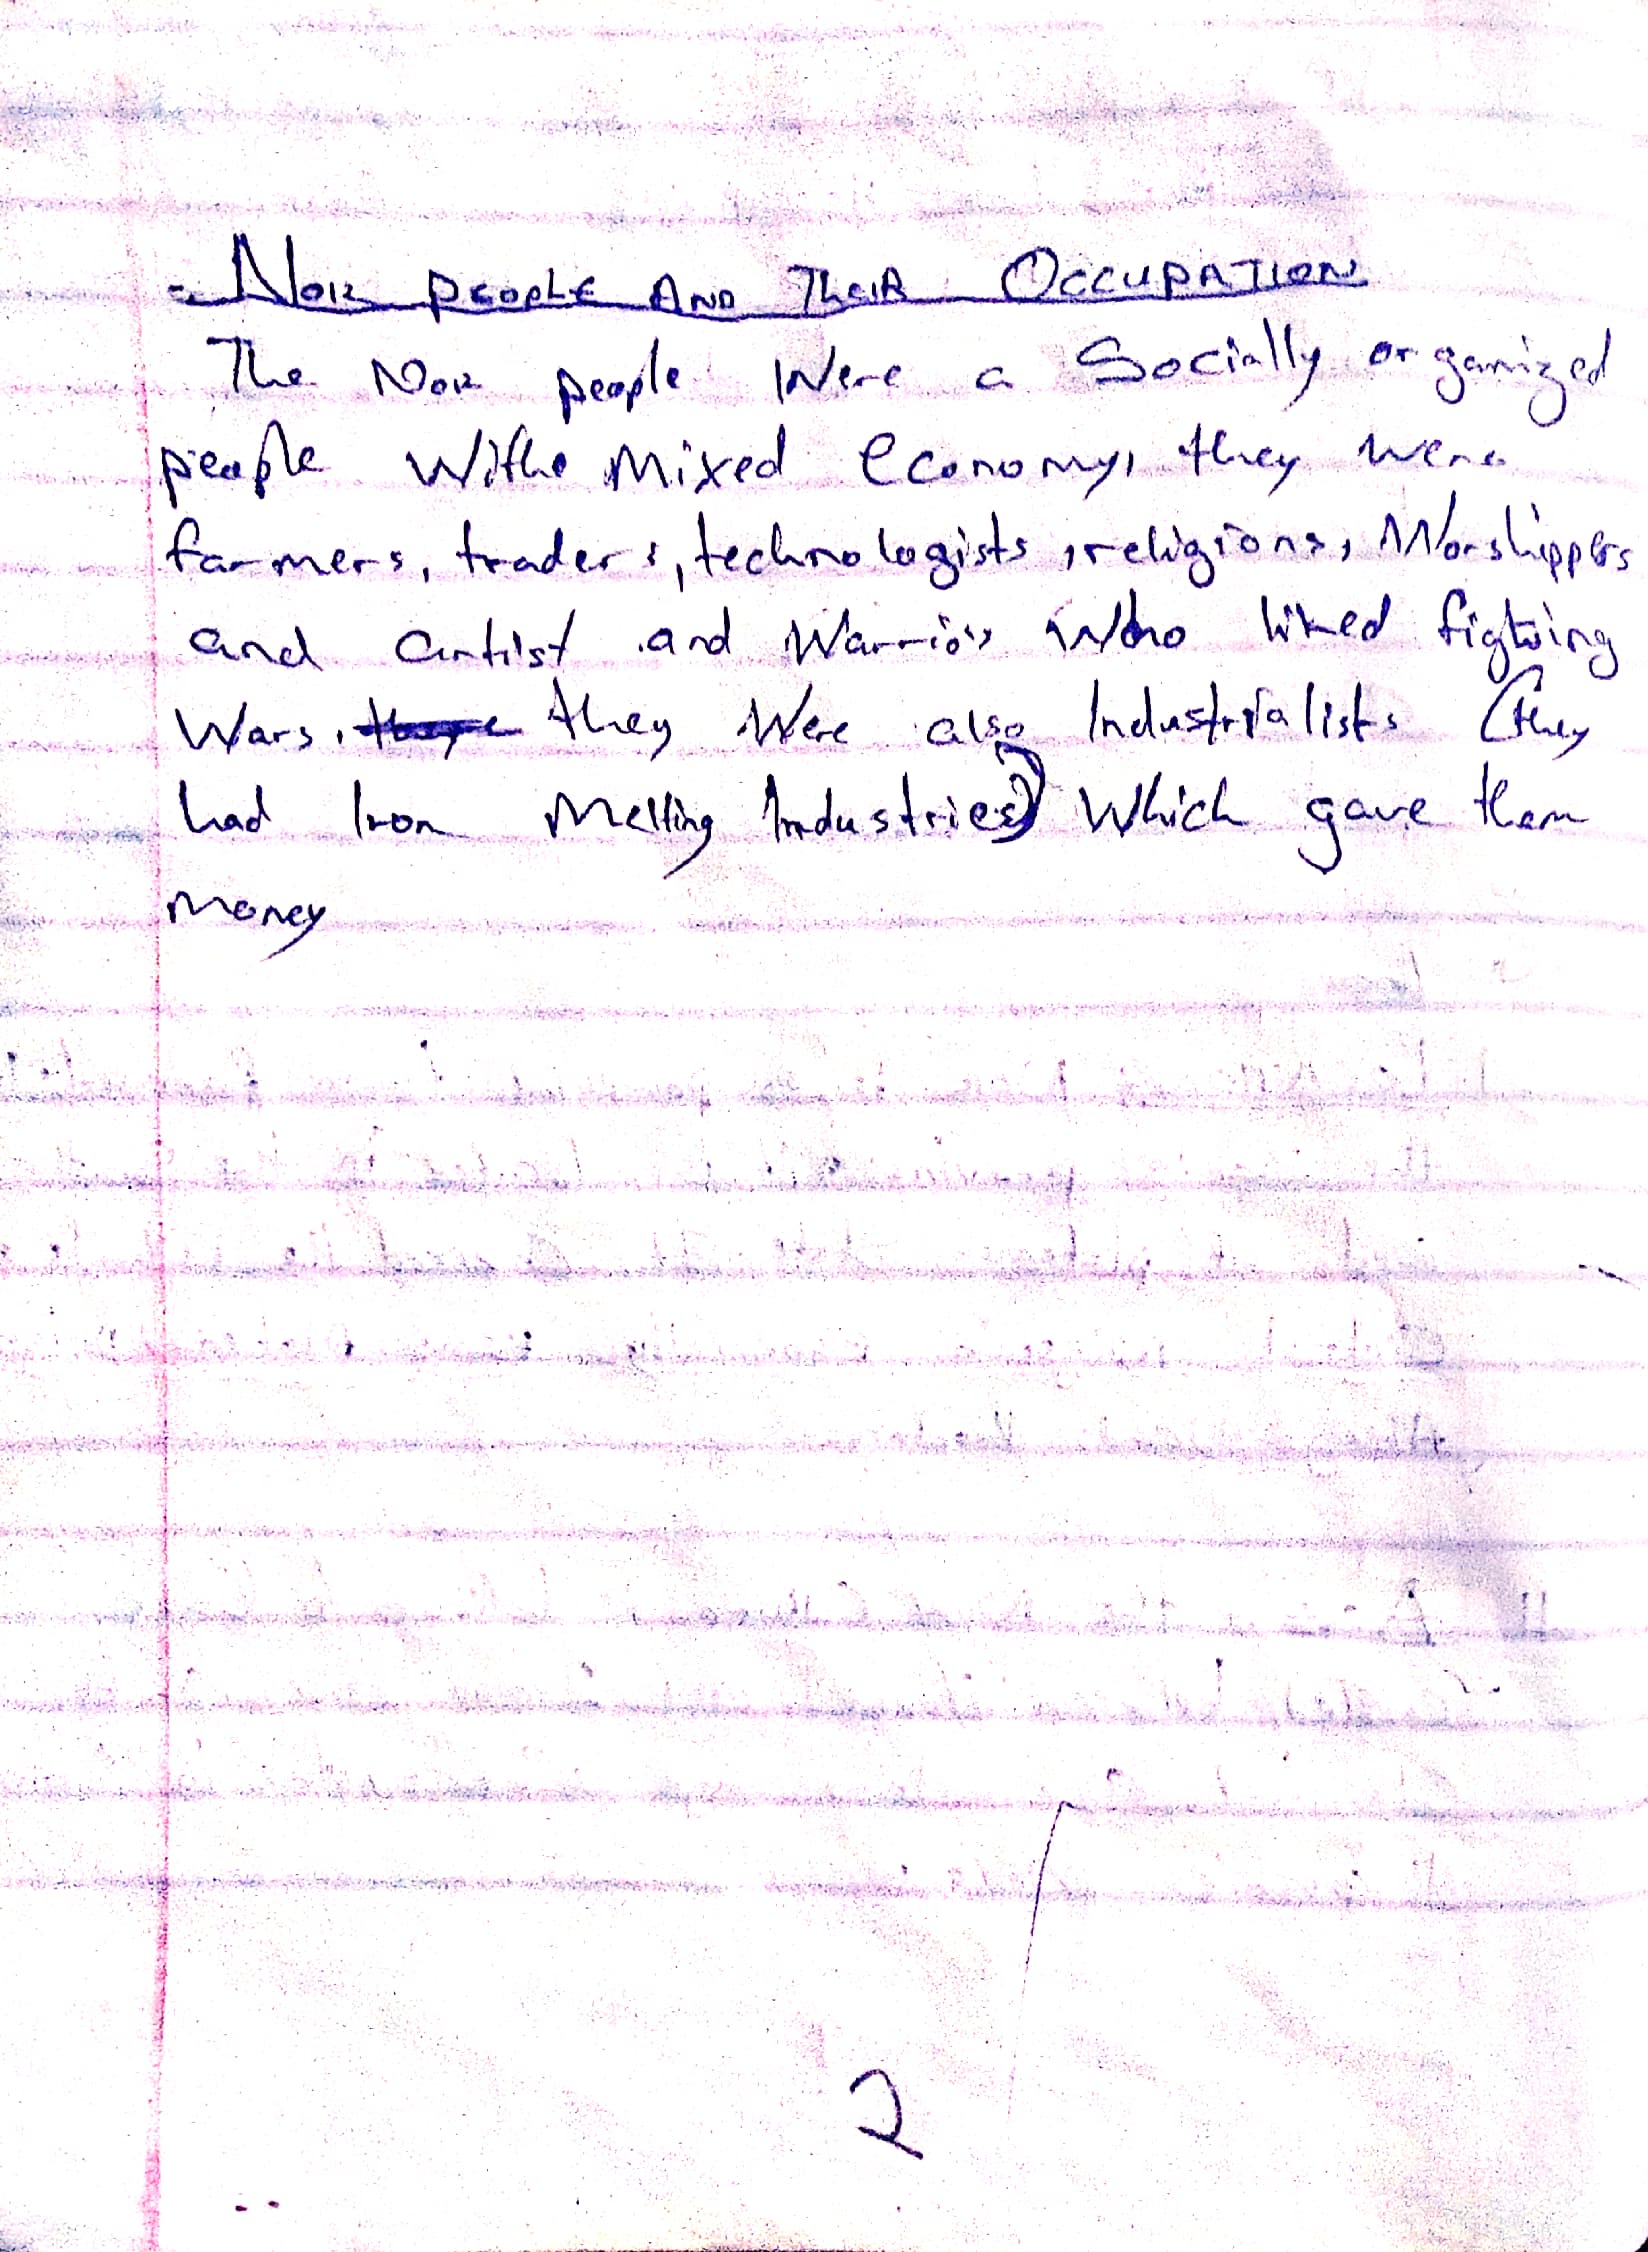 - NOK PEOPLE AND THEIR OCCUPATION
The Nok people Were a Socially organized
people Withe Mixed Economy, they were
farmers, traders, technologists, religions, Worshippers
and artist and Warriors Who liked figtving
Wars. they Were also Industrialists (they
had Iron Melting Industries) Which gave them
money
2